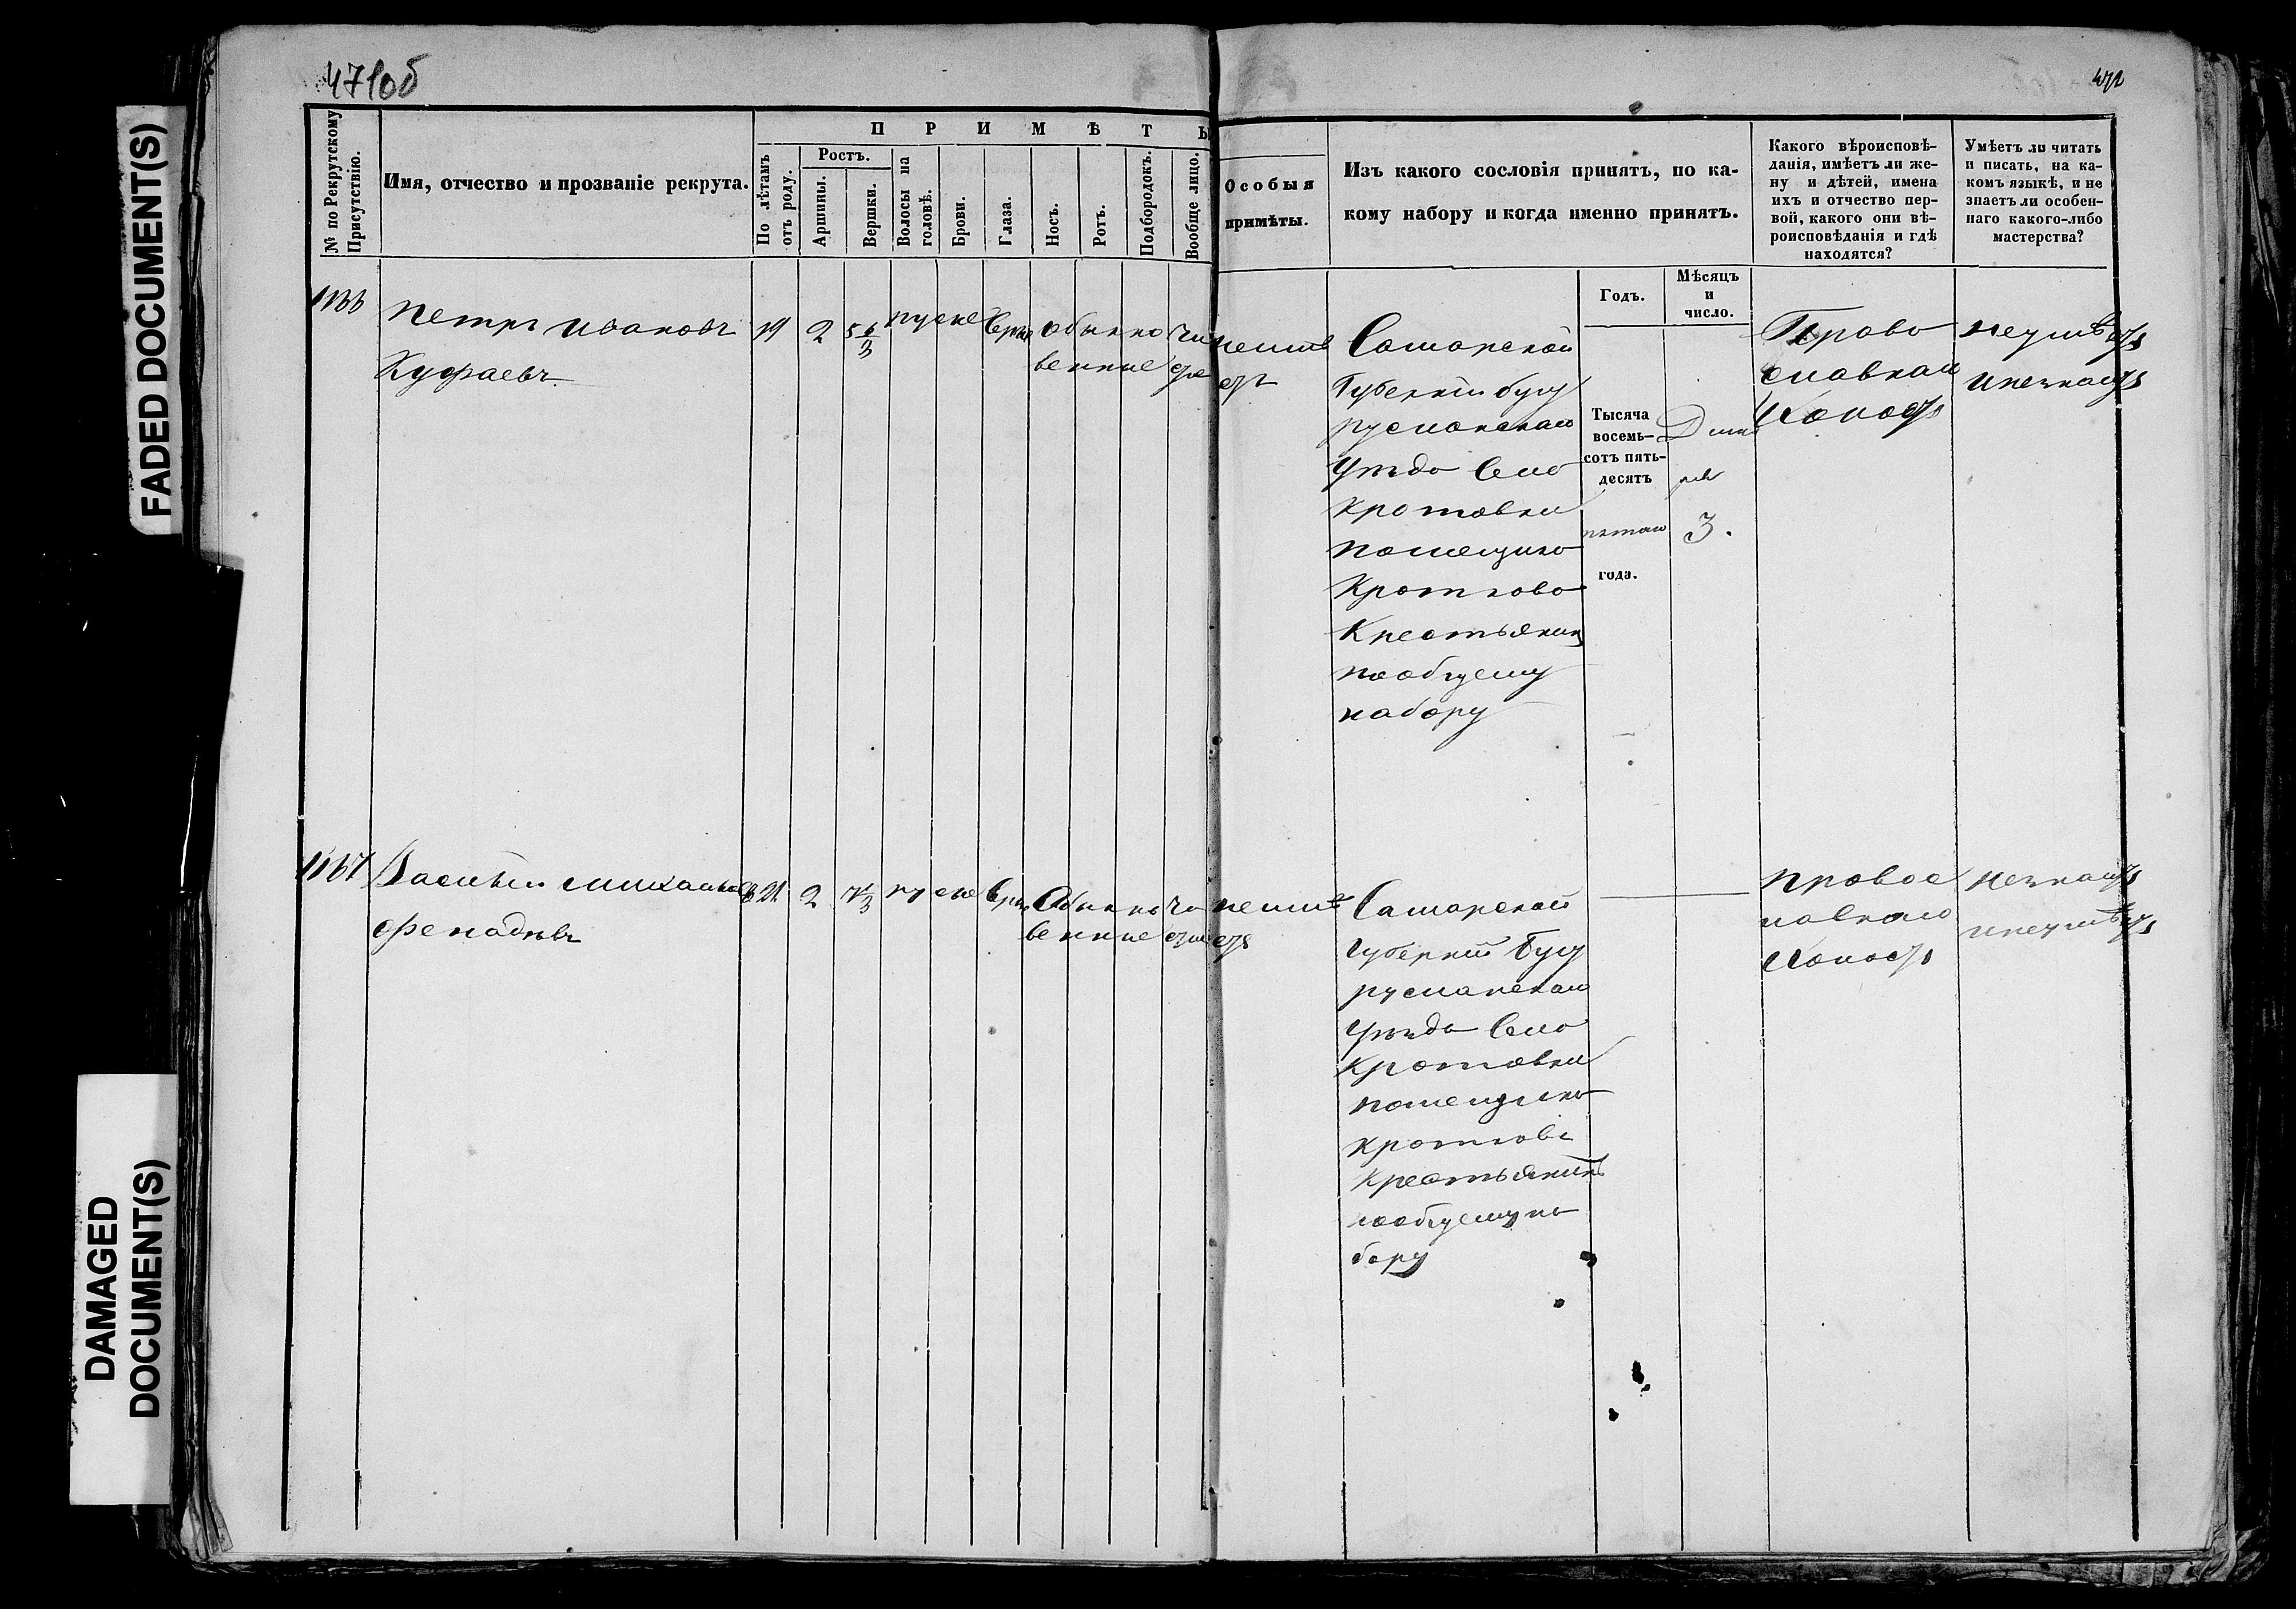 471об
472
FADED DOCUMENT(S)
DAMAGED
DOCUMENT(S)
№ по Рекрутскому
Присутствію.
Имя, отчество и прозваніе рекрута.
ПРИМѢТЫ
По лѣтамъ
отъ роду.
Ростъ.
Аршины.
Вершки.
Волосы на
головѣ.
Брови.
Глаза.
Носъ.
Ротъ.
Подбородокъ.
Вообще лицо.
Особыя
примѣты.
Изъ какого сословія принятъ, по ка-
кому набору и когда именно принятъ.
Годъ.
Мѣсяцъ
и
число.
Какого вѣроисповѣ-
данія, имѣетъ ли же-
ну и дѣтей, имена
ихъ и отчество пер-
вой, какого они вѣ-
роисповѣданія и гдѣ
находятся?
Умѣетъ ли читать
и писать, на ка-
комъ языкѣ, и не
знаетъ ли особен-
наго какого-либо
мастерства?
1166
Петръ Ивановъ
Куфаевъ
19
2
русые
Серые
Обыкно
венные
Чи
стое
неиме
етъ
Самарской
Губерніи Бугу
русланскаго
Уѣзда Села
Кротовки
помещика
Кроткова
Крестьянин
пообщему
набору
Тысяча
восемь-
сотъ пять-
десятъ
пятаго
года.
Дека
бря
3.
Право
славнаго
Холостъ
неумѣетъ
инезнаетъ
1167
Василий Михайлов
21
2
русые
Серые
Обыкно
венные
Чи
стое
неиме
етъ
Самарской
Губерніи Бугу
русланскаго
Уѣзда Села
Кротовки
помещика
Кроткова
Крестьянинъ
пообщему на
бору
Правос
лавнаго
Холостъ
незнаетъ
инеумѣетъ